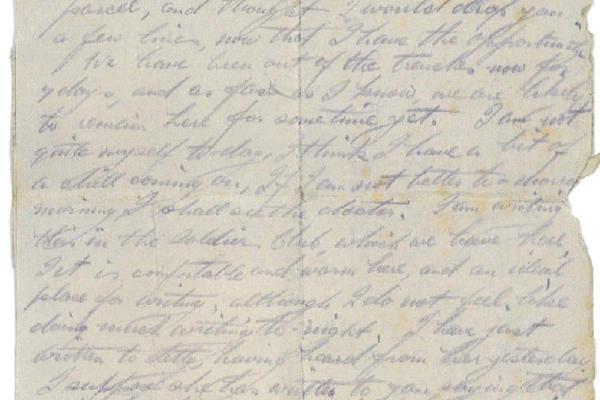 parcel, and thought I would drop you
a few lines, now that I have the opportunity
We have been out of the trenches now for
days, and as far as I know, we are likely
to remain here for sometime yet. I am not
quite myself to-day, I think I have a bit of
a chill coming on, If I am not better to-morrow
morning I shall see the doctor. I am writing
this in the Soldiers Club, which we have here
It is comfortable and warm here, and an ideal
place for writing, although I do not feel like
doing much writing to-night I have just
written to having heard from her yesterday
I suppose she has written to you, saying that